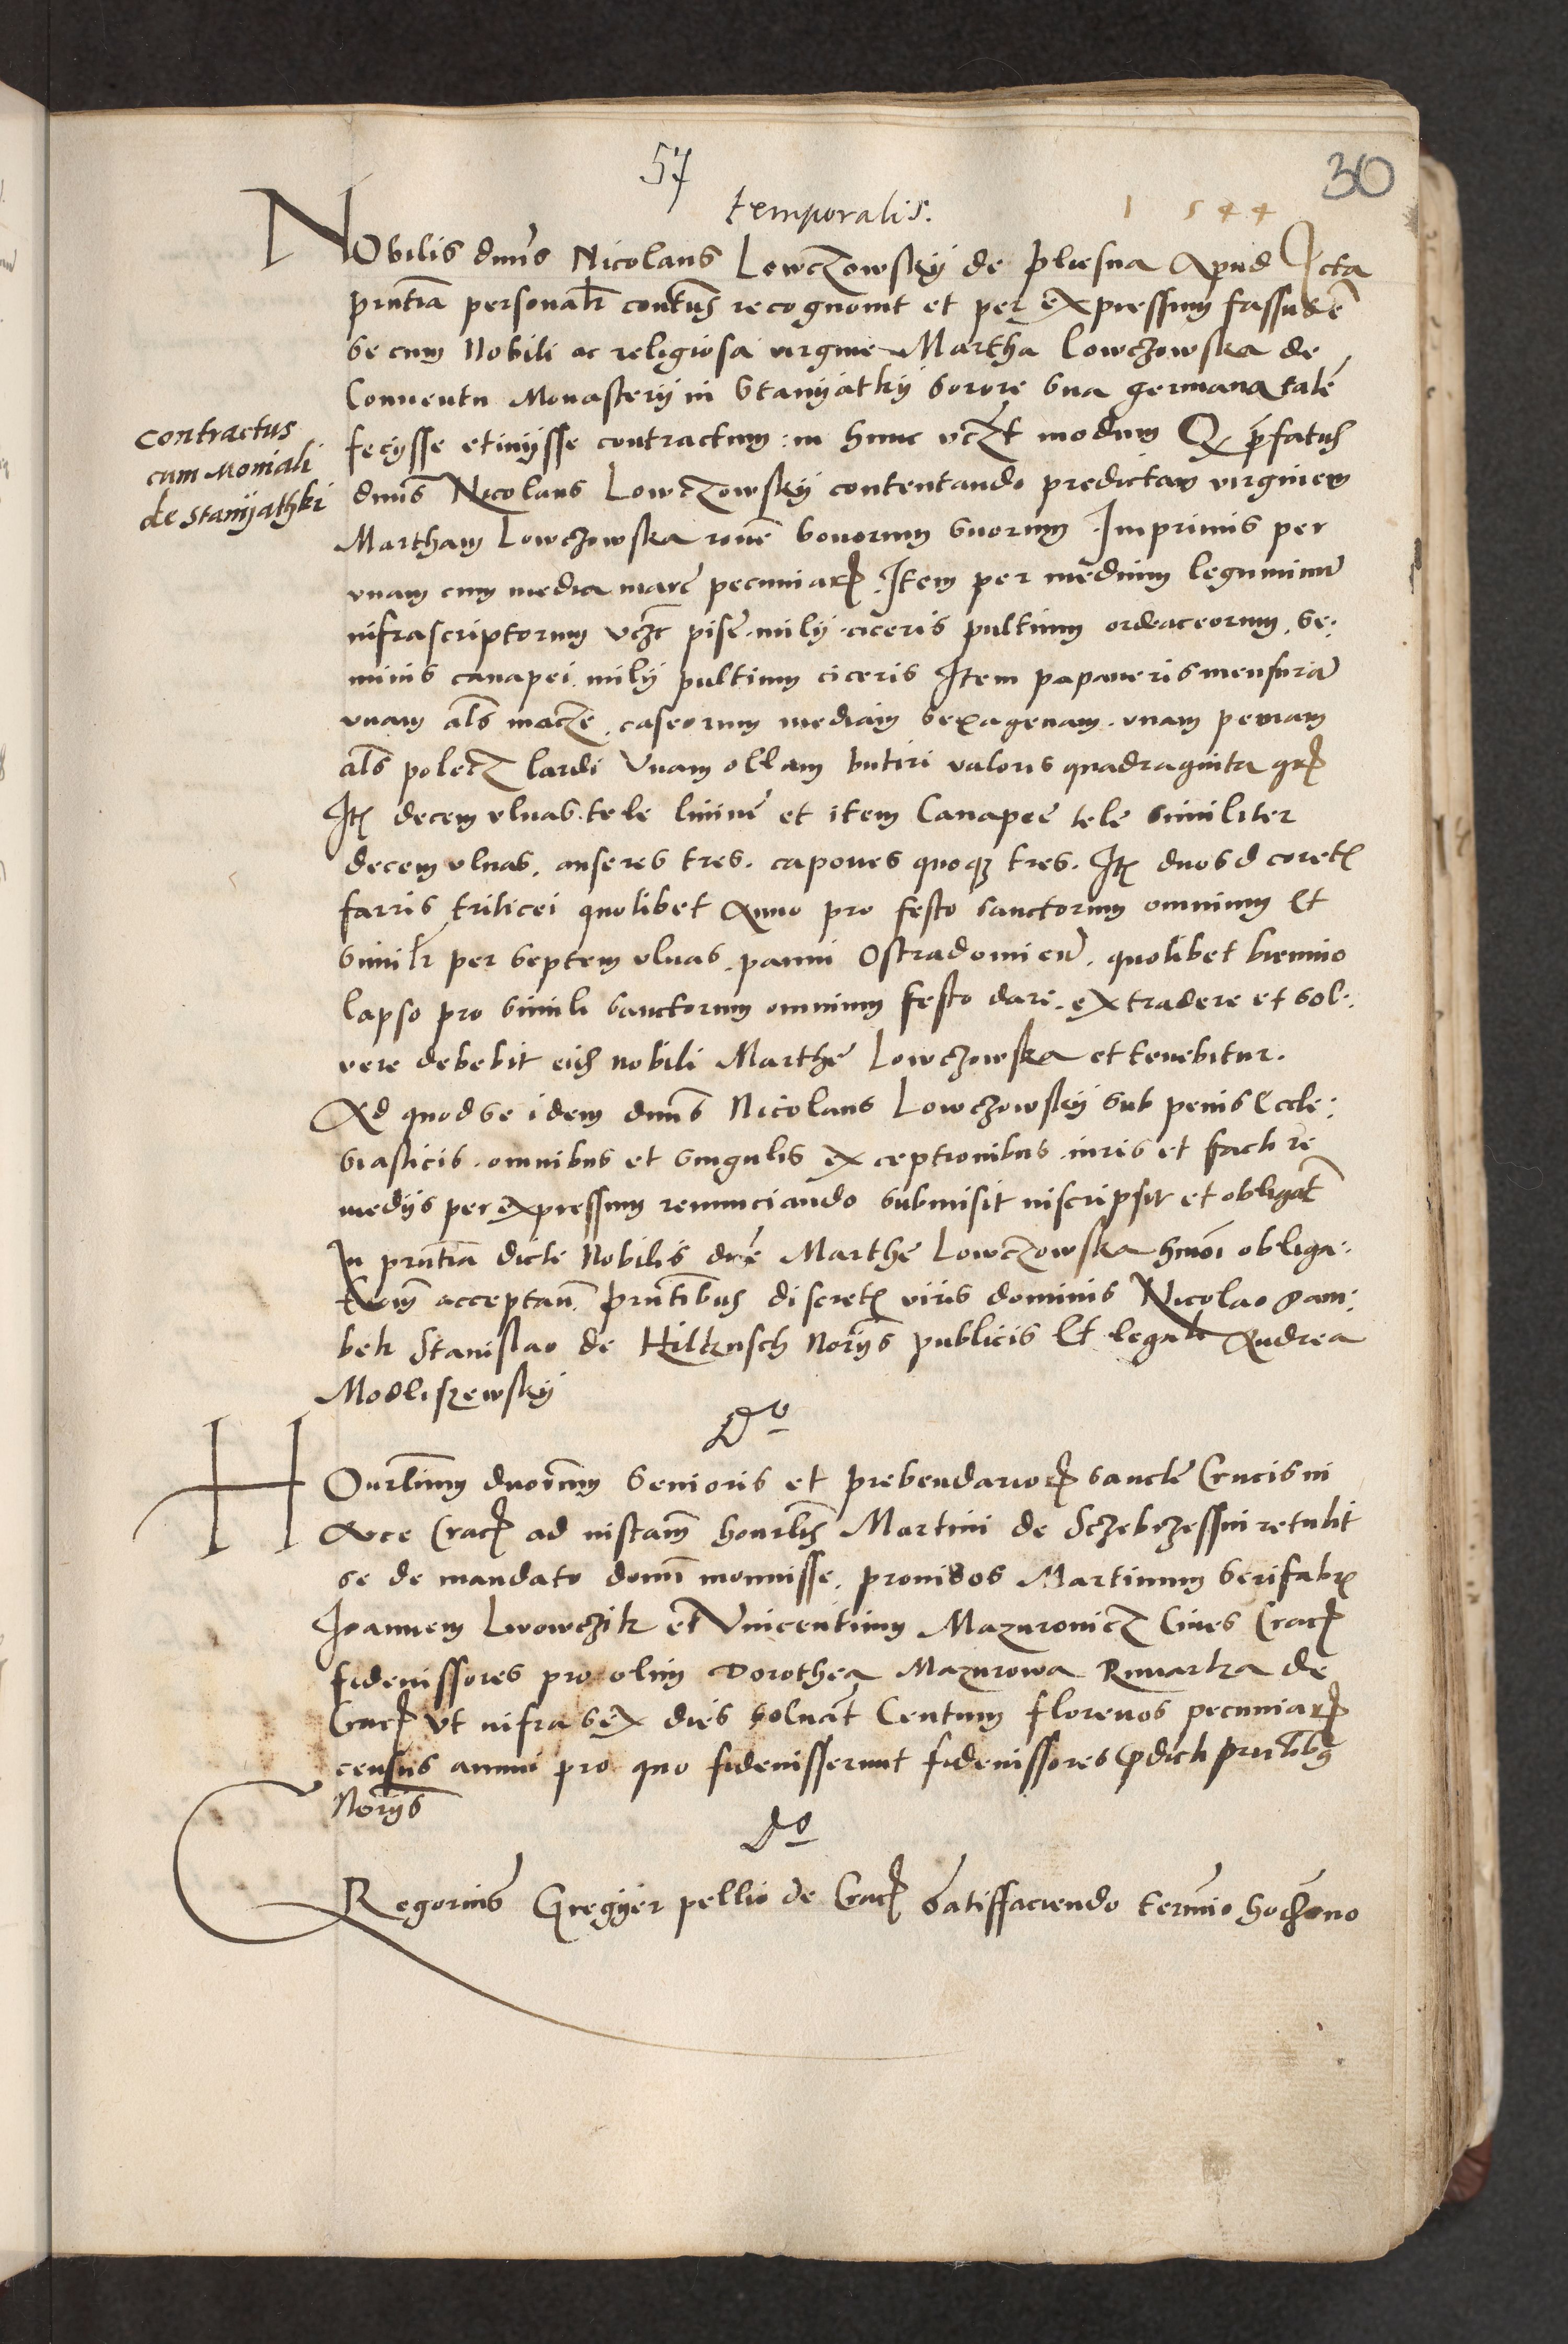 57
30
temporalis.
1 5 4 4
NObilis dnus Nicolaus Lowczowskÿ de pliesna Apud Acta
pntia personalr contus recognouit et per expressum fassus ẽ
se cum Nobili ac religiosa virgine Martha Lowczowska de
Conuentu Monasterÿ in Stanÿatkÿ sorore sua germana talẽ
fecÿsse et inÿsse contractum: in hunc vczt modum Q pfatus
dnus Nicolaus Lowczowskÿ contentando predictam virginem
Martham Lowczowska rone bonorum suorum Imprimis per
vnam cum media marc pecuniar. Item per medium leguminum
infrascriptorum vczt pise milÿ ciceris pultium ordeaceorum se:
minis canapei milÿ pultium ciceris Item papaueris mensuram
vnam als macze. caseorum mediam sexagenam. vnam pernam
als polecz lardi Vnam ollam butiri valoris quadraginta gr
Itẽ decem vlnas tele linine et item Canapee tele similiter
decem vlnas. anseres tres. capones quoq tres. Itẽ duos d coret
farris triticei quolibet Anno pro festo sanctorum omnium Et
similr per septem vlnas panni Ostradomien. quolibet biennio
lapso pro simili sanctorum omnium festo dare. extradere et sol:
uere debebit eid nobili Marthe Lowczowska et tenebitur.
Ad quod se idem dnus Nicolaus Lowczowskÿ sub penis Eccle:
siasticis omnibus et singulis exceptionibus iuris et facti re
medÿs per expressum renunciando submisit inscripsit et obligat
In pntia dicte Nobilis dne Marthe Lowczowska hmoi obliga:
tiom acceptan. pntibus discret viris dominis Nicolao Jam:
bek Stanislao de Hilknsch Norÿs publicis Et legali Andrea
Modliszewskÿ
Do
HOnrlium dnorum senioris et prebendarior sancte Crucis in
Arce Crac ad instam honrlis Martini de Sczebrzessin retulit
se de mandato domi monuisse prouisos Martinum serifabr
Joannem Lwowczik et Vincentium Mazurouicz Ciues Crac
fideiussores pro olim Dorothea Mazurowa Rimarka de
Crac vt infra sex dies soluant Centum florenos pecuniar
census annui pro quo fideiusserunt fideiussores pdicti pntibq
Norÿs
Do
GRegorius Gregÿer pellio de Crac Satisffaciendo termio hodierno
contractus
cum Moniali
de Stanÿathki